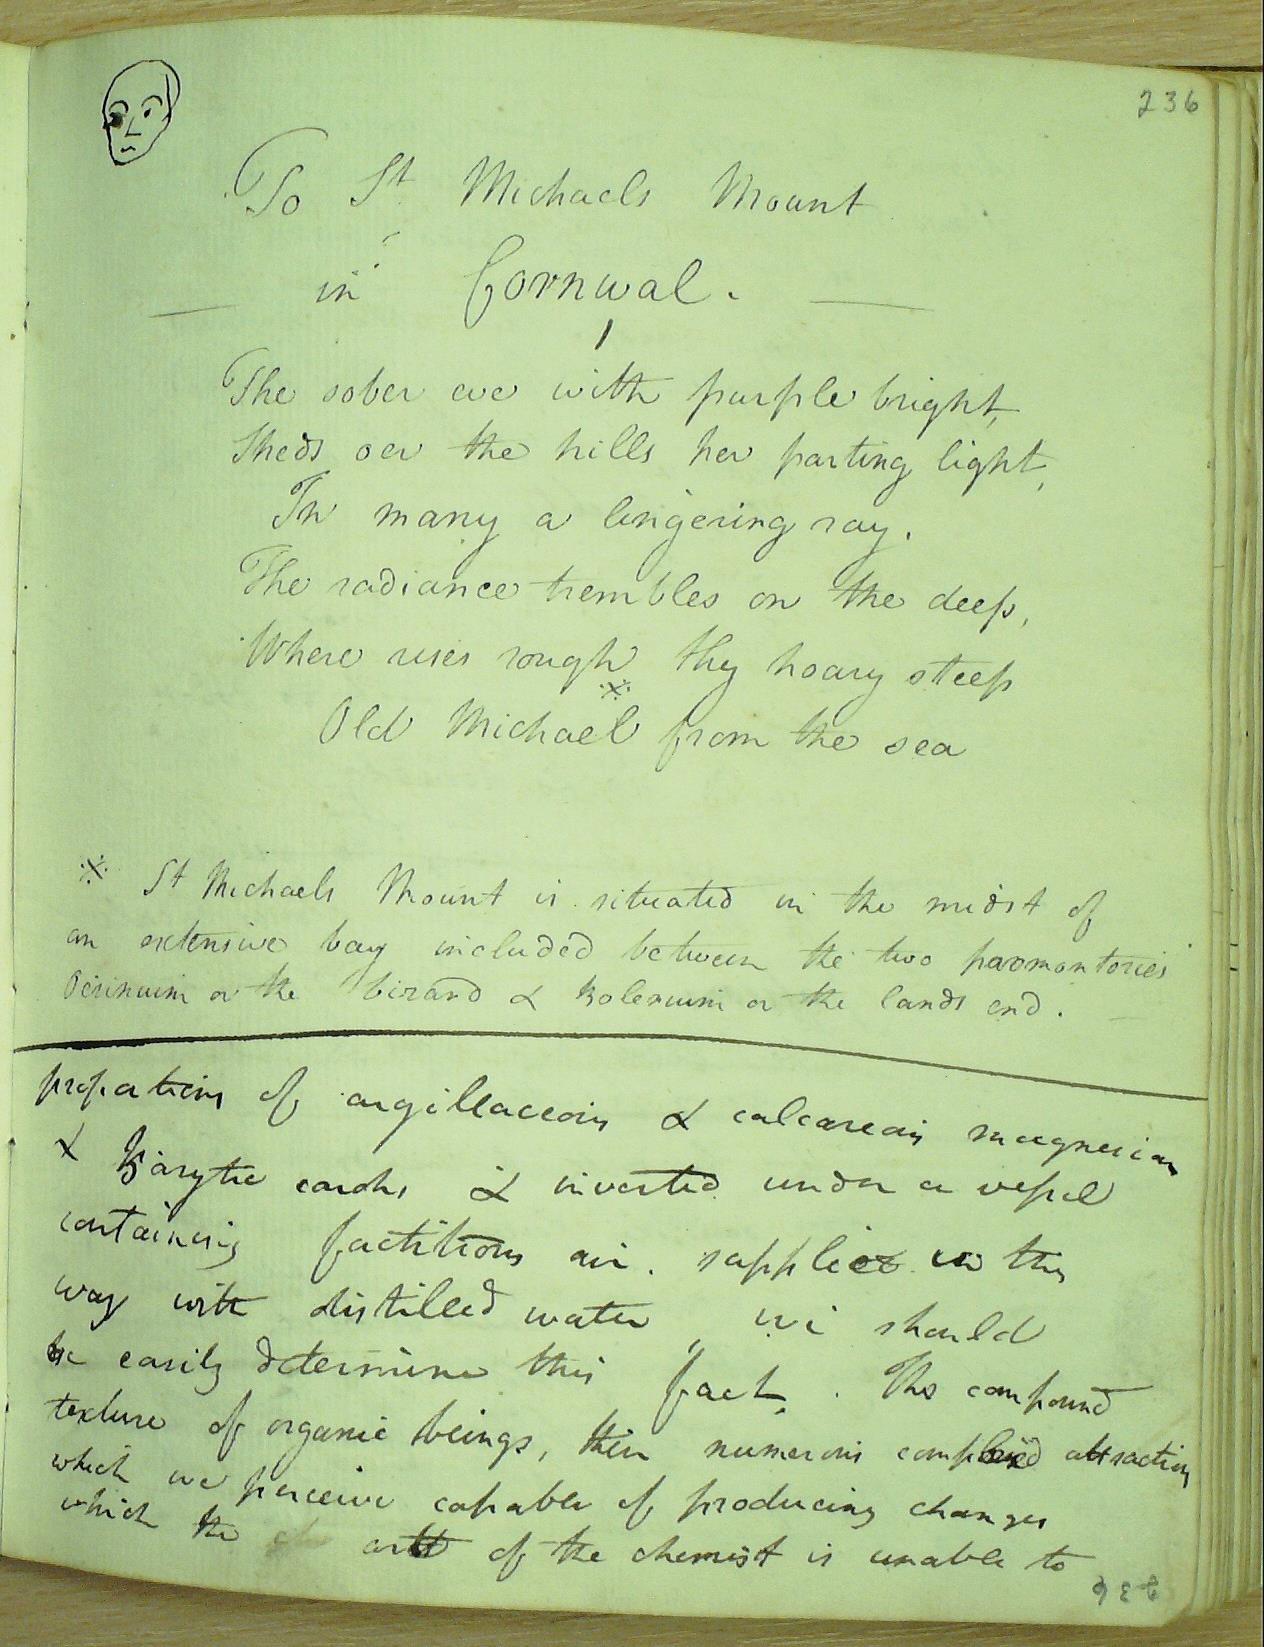 236
To St Michaels Mount
in Cornwal.
1
The sober eve with purple bright,
Sheds oer the hills her parting light,
In many a lingering ray.
The radiance trembles on the deep,
Where rises rough thy hoary steep
Old Michael ※ from the sea
※ St Michaels Mount is situated in the midst of
an extensive bay included between the two promontories
Ocrinum or the Lizard & Bolerium or the lands end.
proportions of argillaceous & calcareous magnesian
& Barytic earths & inverted under a vessel
containing factitious air. supplied in this
way with distilled water, we should
easily determine this fact. The compound
texture of organic beings, their numerous attractions
which we perceive capable of producing changes
which the art of the chemist is unable to
236